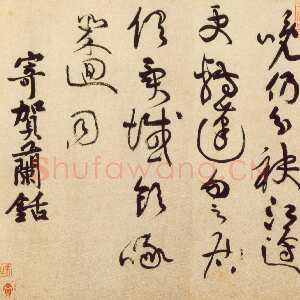 晚仍分袂江邊
更轉蓬勿言
俱異域飲啄
幾迴同
寄賀蘭銛
Shufawang.CN